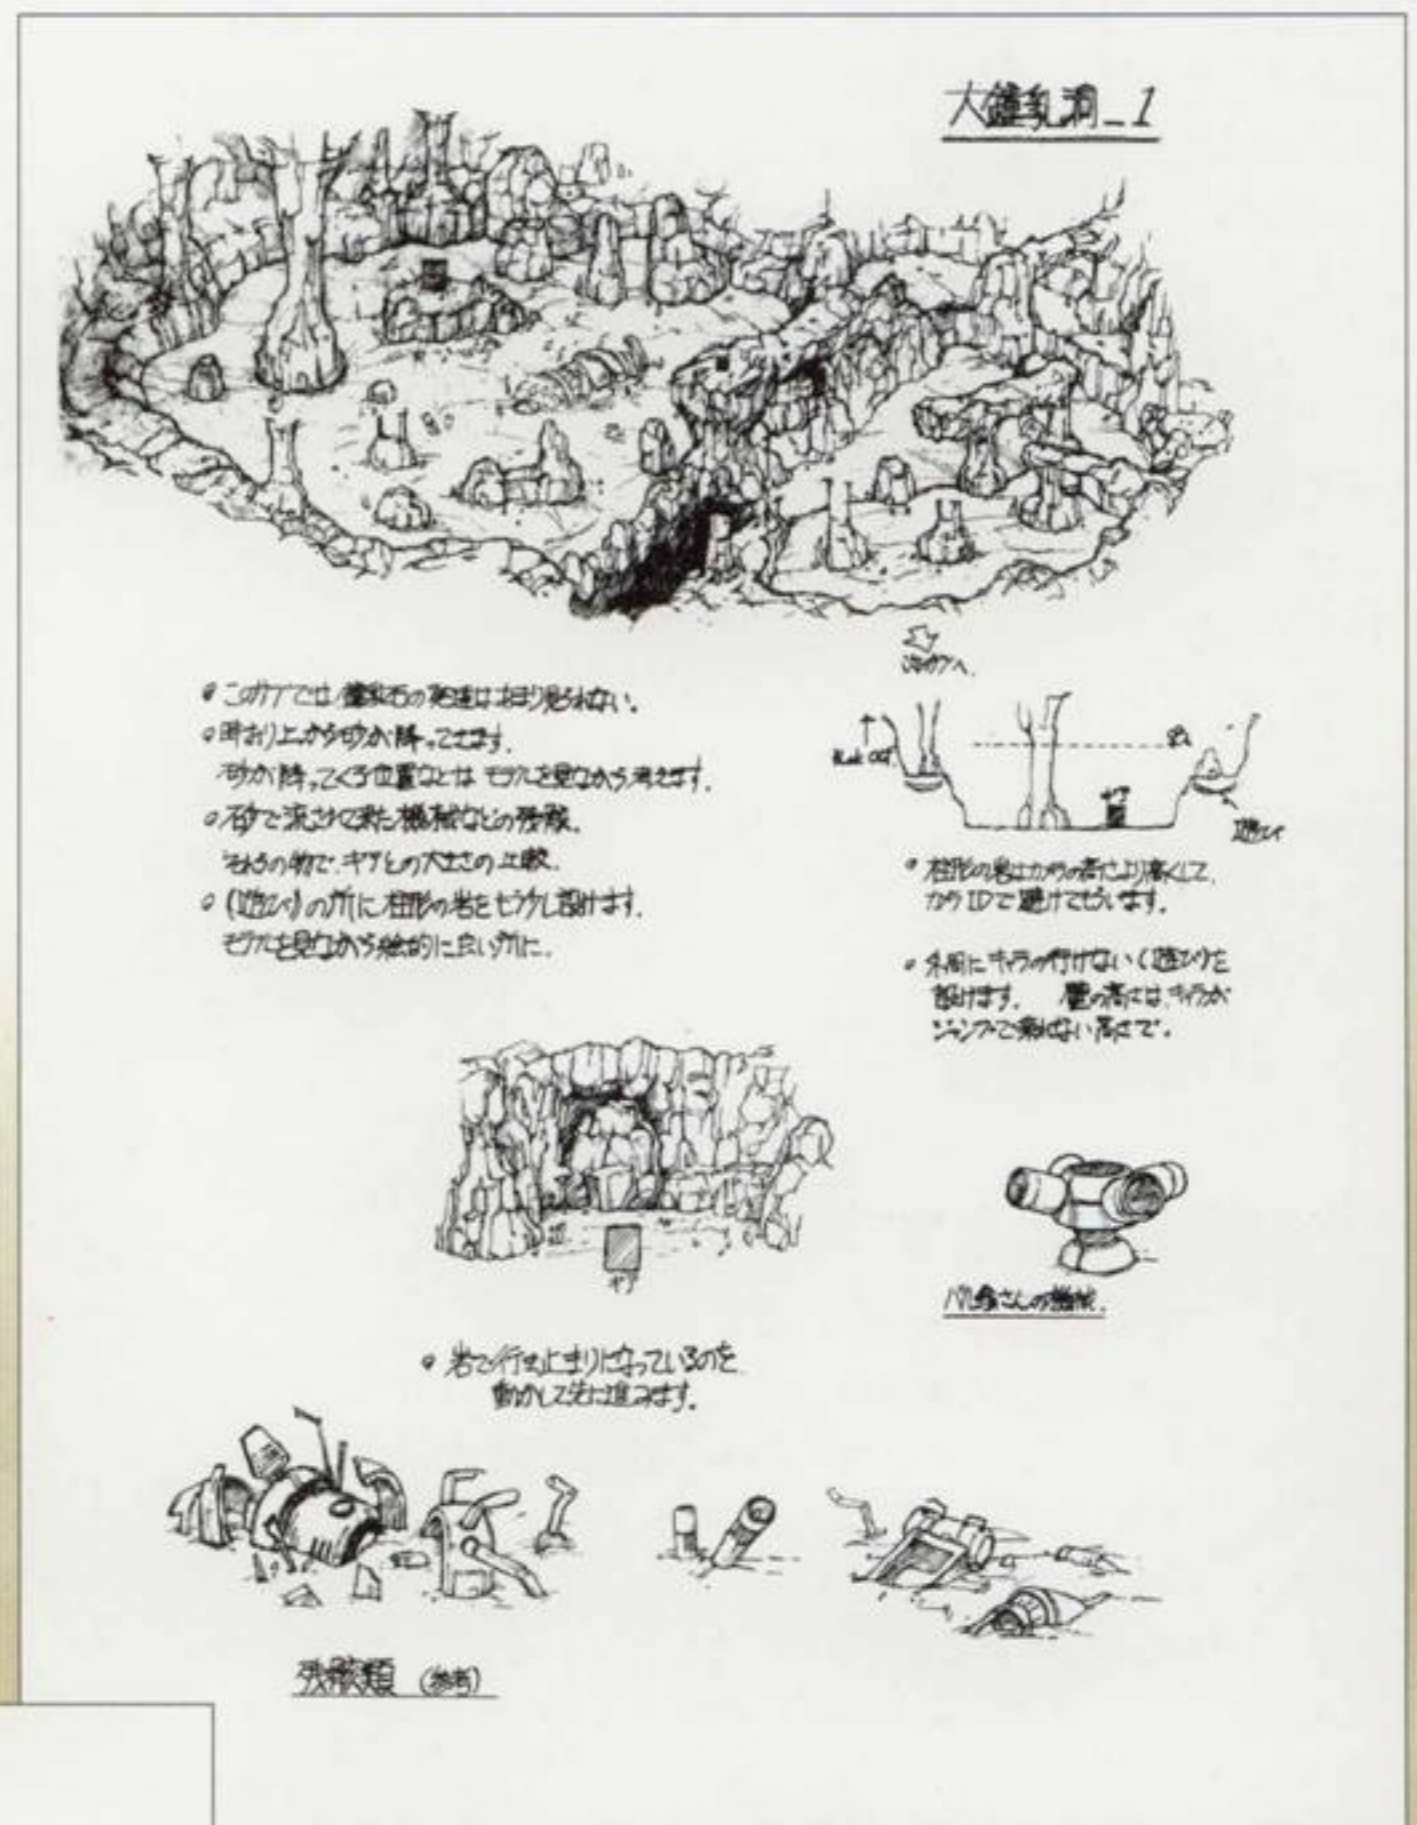 大鍾乳洞_1
次のカプへ
・このカプでは鍾乳石の発達はあまり見られない。
・時おり上から砂が降ってきます。
砂が降ってくる位置などは モデルを見ながら考えます。
・砂で流されて来た機械などの残骸。
それらの物で、ギアとの大きさの比較。
・(遊び)の所に柱形の岩をせっちし設けます。
モデルを見ながら絵的に良い所に。
ギア
遊び
・柱形の岩はカメラの高さより高くして、
カメラIDで避けてもらいます。
・外周にキャラの行けない(遊び)を
設けます。 壁の高さは、キャラが
ジャンプで乗れない高さで。
ギア
さんの機械。
・岩で行き止まりになっているのを
動かして先に進みます。
残骸類 (参考)